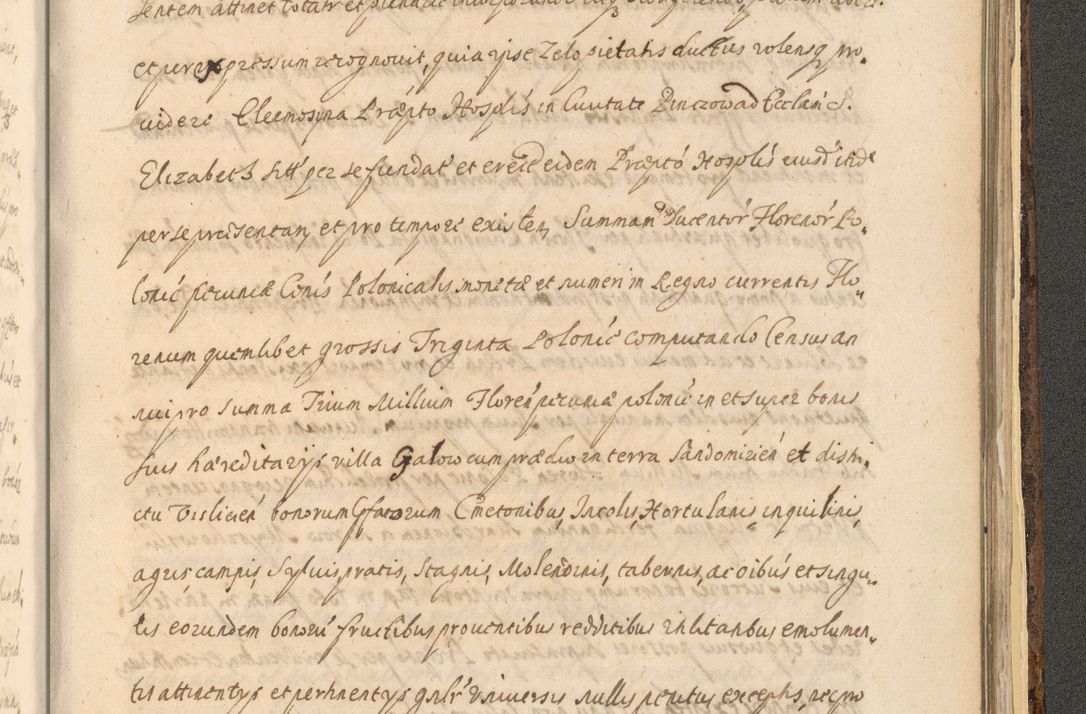 et per expressum recognovit, quia ipse Zelo pietatis ductus volensq pro„
videre Eleemosina Præpto Hosplis in Civitate Pinczow ad Ecclam S.
Elizabeth sitt per se fundat et erect eidem Præpto Hosplis eiusd
per se præsentan, et pro tempore existen, Summam Ducentor Florenor Po„
lonic pecuniæ Conis Polonicalis monetæ et numeri in Regno currentis Flo„
renum quemlibet grossis Triginta Polonic computando Census an
nui pro summa Trium Millium Floren pecuniæ polonic in et super bonis
suis hæreditarys villa Galow cum prædio in terra Sandomirien et distri„
ctu Vislicien bonorum Gfatorum Cmetonibus, Incolis, Hortulanis, inquilinis,
agris campis, Sylvis, pratis, Stagnis, Molendinis, tabernis, ac oibus et singu„
lis eorundem bonoru fructibus proventibus redditibus utilitatibus emolumen„
tis attinentys et pertinentys gnlr Universis nullis penitus exceptis, nec pro